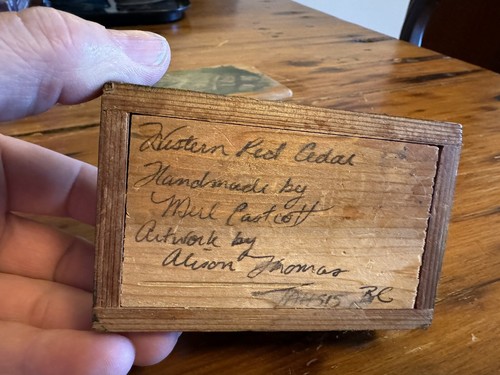 Western Red Cedar
Handmade by
Merl
Artwork by
Alison Thomas
Tahsis BC